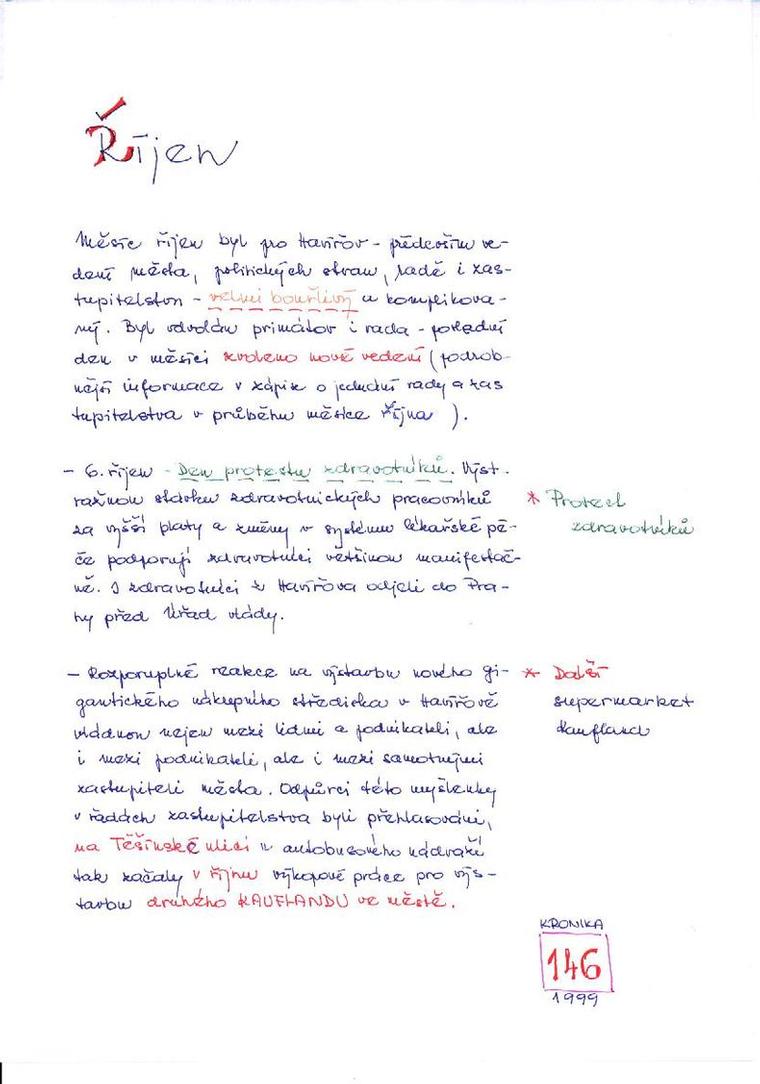 Říjen
Měsíc říjen byl pro Havířov - především ve-
dení města, politických stran, radě i zas-
tupitelstvu - velmi bouřlivý a komplikova-
ný. Byl odvolán primátor i rada - poslední
den v měsíci zvoleno nové vedení (podrob-
nější informace v zápise o jednání rady a zas
tupitelstva v průběhu měsíce října ).
- 6. říjen - Den protestu zdravotníků. Výst-
ražnou stávku zdravotnických pracovníků
za vyšší platy a změny v systému lékařské pé-
če podporují zdravotníci většinou manifestač-
ně. I zdravotníci z Havířova odjeli do Pra-
hy před Úřad vlády.
* Protest
zdravotníků
- Rozporuplné reakce na výstavbu nového gi-
gantického nákupního střediska v Havířově
vládnou nejen mezi lidmi a podnikateli, ale
i mezi podnikateli, ale i mezi samotnými
zastupiteli města. Odpůrci této myšlenky
v řadách zastupitelstva byli přehlasováni,
na Těšínské ulici u autobusového nádraží
tak začaly v říjnu výkopové práce pro výs-
tavbu druhého KAUFLANDU ve městě.
* Další
supermarket
Kaufland
KRONIKA
146
1999